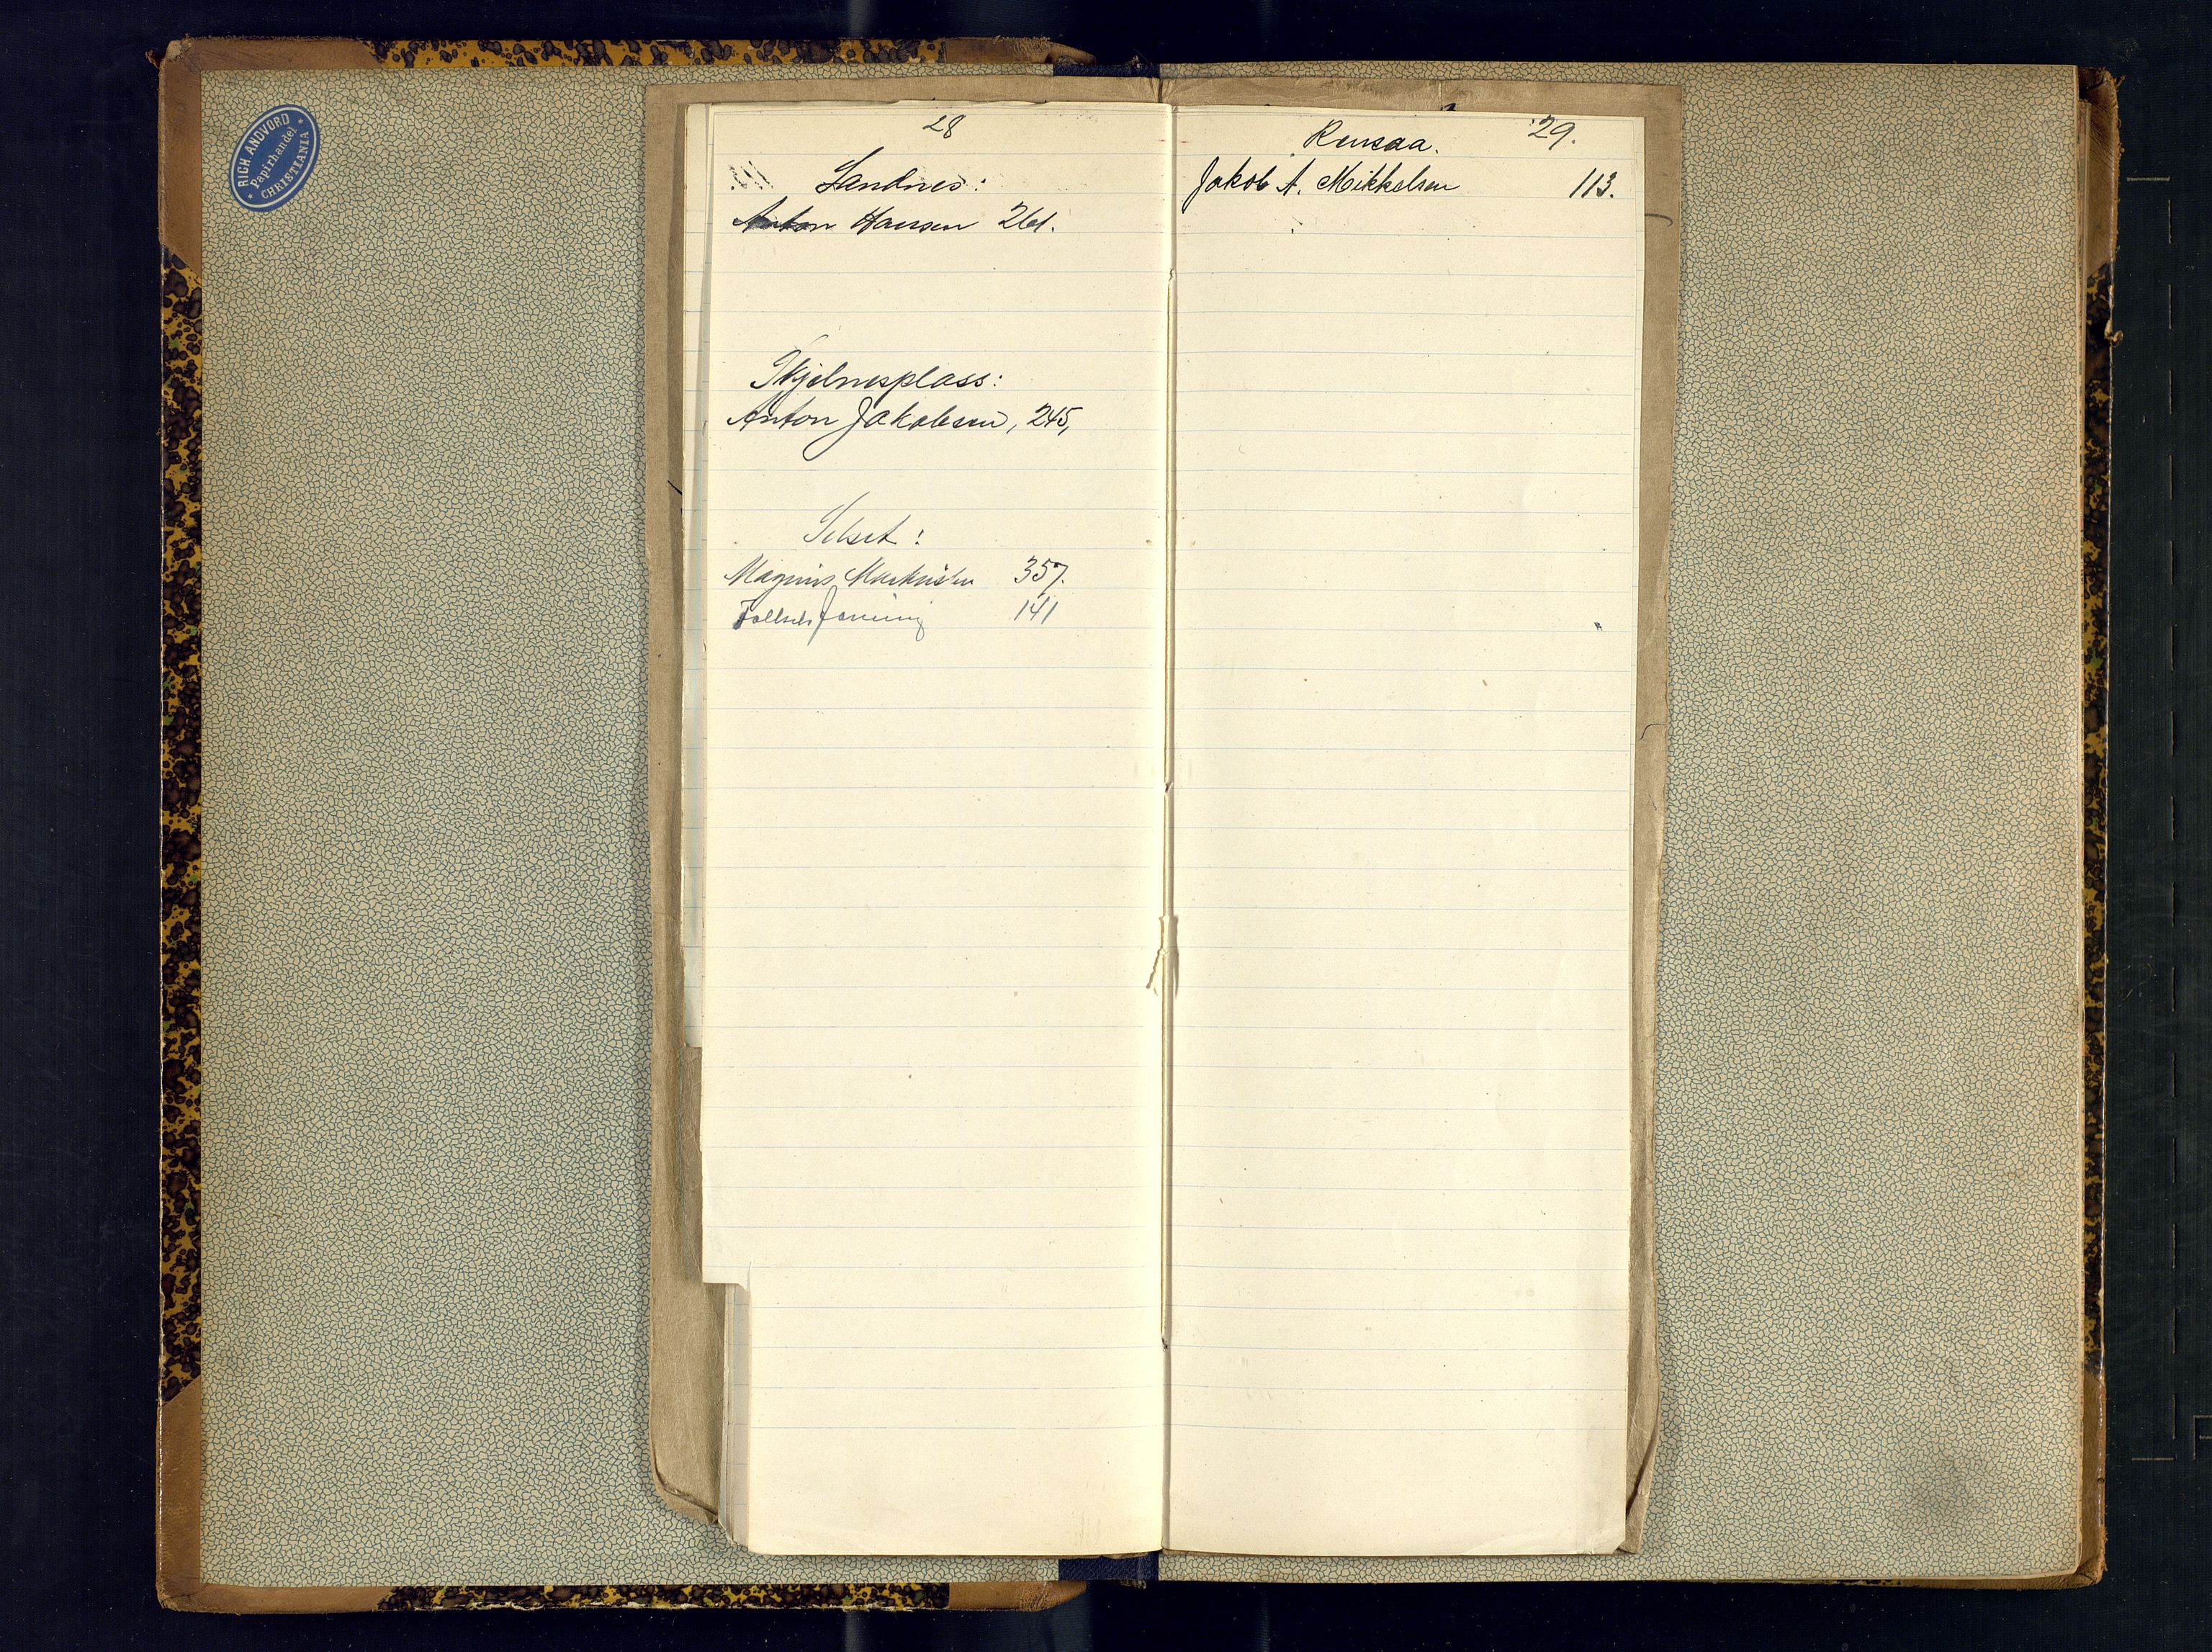 RICH. ANDVORD
Papirhandel
CHRISTIANIA
28
Sandnes:
Anton Hansen 261.
Anton Jakobsen, 245,
Selset:
Magnus Markusen 357.
141
29.
Rensaa.
Jakob A. Mikkelsen 113.